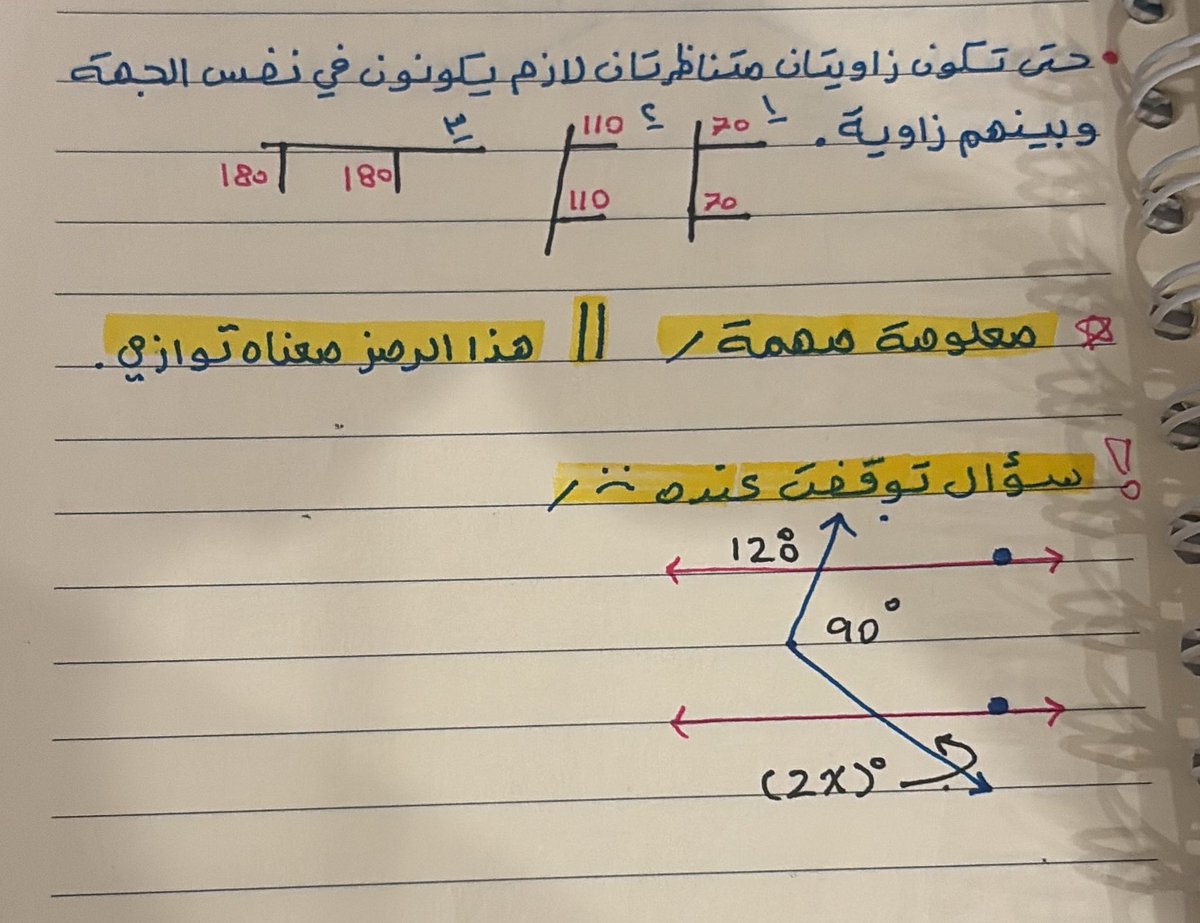 • حتى تكون زاويتان متناظرتان لازم يكونون في نفس الجهة
وبينهم زاوية .
١ ٢ ٣
70 110
180 180
70 110
معلومة مهمة / || هذا الرمز معناه توازي .
! سؤال توقفت عنده /
128°
90°
(2x)°